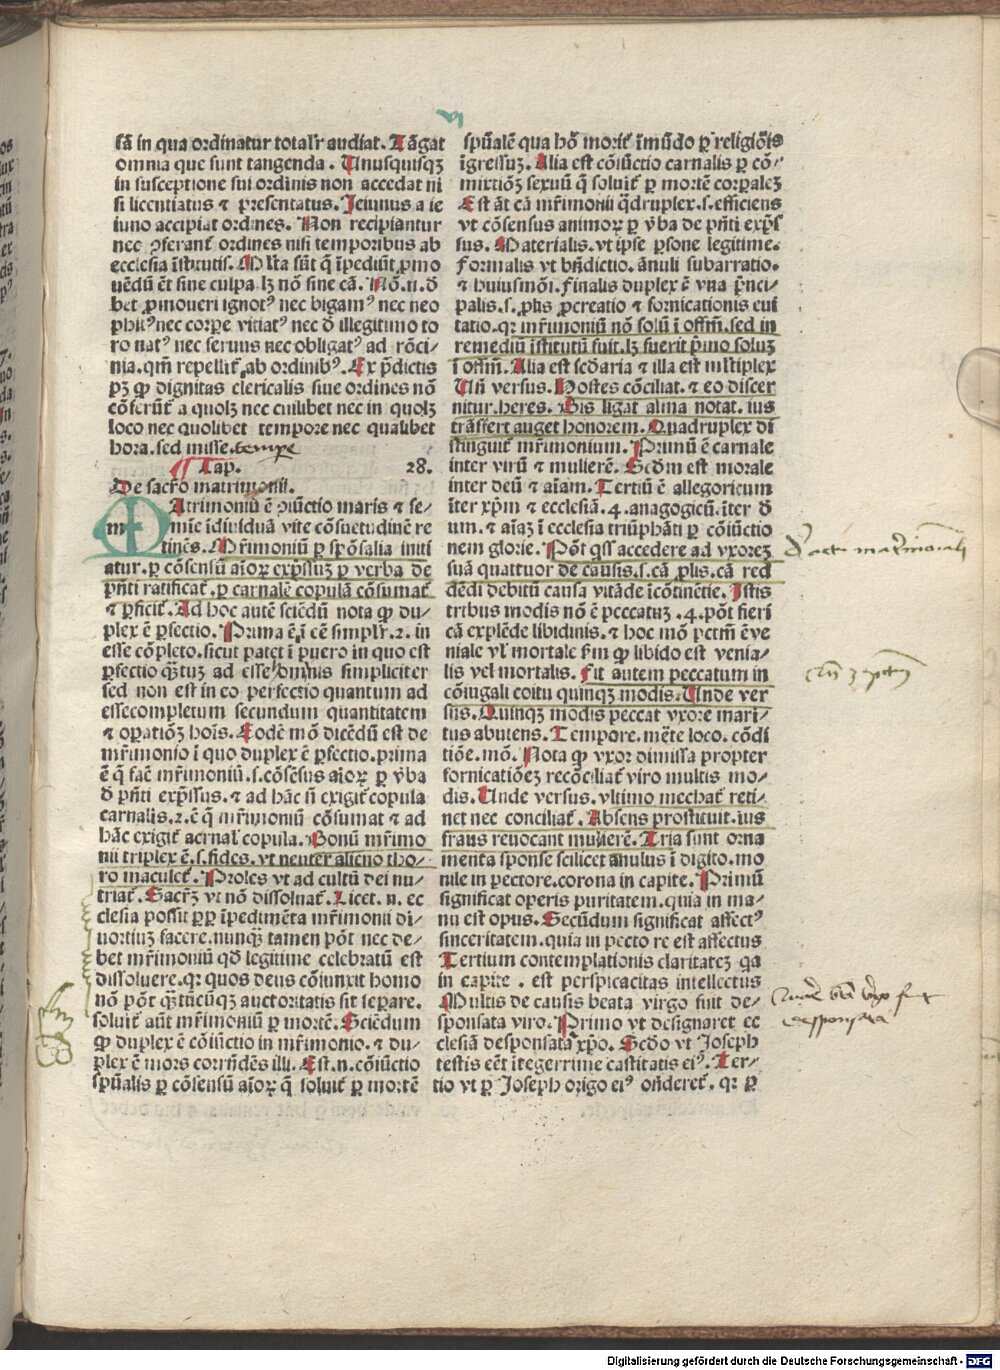 sã in qua ordinatur totalr̃ audiat. Tãgat
omnia que sunt tangenda. Unusquisqꝫ
in susceptione sui ordinis non accedat ni
si licentiatus ⁊ presentatus. Jeiunus a ie
iuno accipiat ordines. Non recipiantur
nec ꝯferant̃ ordines nisi temporibus ab
ecclesia ĩstitutis. Ml̃ta sũt q̃ ĩpediũt ꝓmo
uẽdũ ẽt sine culpa lꝫ nõ sine cã. Nõ .n. d̃
bet ꝓmoueri ignotꝰ nec bigamꝰ nec neo
phitꝰ nec corꝑe viciatꝰ nec d̃ illegitimo to
ro natꝰ nec seruus nec obligatꝰ ad rõci⸗
nia. qm̃ repellit̃ ab ordinibꝰ. Ex p̃dictis
pꝫ ꝙ dignitas clericalis siue ordines nõ
cõferũt̃ a quolꝫ nec cuilibet nec in quolꝫ
loco nec quolibet tempore nec qualibet
hora. sed misse. tempe
Cap. 28.
De sacr̃o matrimonii.
m Atrimoniũ ẽ ꝯiũctio maris ⁊ fe⸗
mĩe ĩdiuiduã vite cõsuetudinẽ re
tinẽs. Mr̃imoniũ ꝑ spõsalia initi
atur. ꝑ cõsensũ aĩoꝝ exp̃ssuꝫ ꝑ verba de
p̃nti ratificat̃. ꝑ carnalẽ copulã cõsumat̃
⁊ ꝑficit̃. Ad hoc autẽ sciẽdũ nota ꝙ du⸗
plex ẽ ꝑfectio. Prima ẽ ĩ ẽẽ simplr̃. 2. in
esse cõpleto. sicut patet ĩ puero in quo est
ꝑfectio q̃tuꝫ ad esse hominis simpliciter
sed non est in eo perfectio quantum ad
essecompletum secundum quantitatem
⁊ oꝑatiõꝫ hoĩs. Eodẽ mõ dicẽdũ est de
mr̃imonio ĩ quo duplex ẽ ꝑfectio. prima
ẽ q̃ facit mr̃imoniũ .s. cõsẽsus aĩoꝝ ꝑ v̓ba
d̃ p̃nti exp̃ssus. ⁊ ad hãc ñ exigit̃ copula
carnalis. 2. ẽ q̃ mr̃imoniũ cõsumat ⁊ ad
hãc exigit̃ acrnal̃ copula. Bonũ mr̃imo
nii triplex ẽ .s. fides. vt neuter alieno tho⸗
ro maculet̃. Proles vt ad cultũ dei nu⸗
triat̃. Sacr̃ꝫ vt nõ dissoluat̃. Licet .n. ec
clesia possit ꝓpꝑ ĩpedimẽta mr̃imonii di⸗
uortiuꝫ facere. nunqꝫ̃ tamen põt nec de⸗
bet mr̃imoniũ qd̃ legitime celebratũ est
dissoluere. qꝛ quos deus cõiunxit homo
nõ põt q̃ꝫtũcũqꝫ auctoritatis sit seꝑare.
soluit̃ aũt mr̃imoniũ ꝑ mortẽ. Sciẽdum
ꝙ duplex ẽ cõiũctio in mr̃imonio. ⁊ du⸗
plex ẽ mors corrñdẽs illi. Est .n. cõiũctio
spũalis ꝑ cõsensũ aĩoꝝ q̃ soluit̃ ꝑ mortẽ
spũalẽ qua hõ morit̃ ĩ mũdo ꝑ religiõis
ĩgressuꝫ. Alia est cõiũctio carnalis ꝑ cõ⸗
mixtiõꝫ sexuũ q̃ soluit̃ ꝑ mortẽ corꝑaleꝫ
Est ãt cã mr̃imonii q̃druplex .s. efficiens
vt cõsensus animoꝝ ꝑ v̓ba de p̃nti exp̃s
sus. Materialis. vt ipse ꝑsone legitime.
Formalis vt bñdictio. ãnuli subarratio.
⁊ huiusmõi. Finalis duplex ẽ vna p̃nci⸗
palis .s. ꝓlis ꝓcreatio ⁊ fornicationis eui
tatio. qꝛ mr̃imoniũ nõ solũ ĩ offm̃. sed in
remediũ ĩstitutũ fuit. lꝫ fuerit p̃mo soluꝫ
ĩ offm̃. Alia est scd̃aria ⁊ illa est ml̃tiplex
Uñ versus. Hostes cõciliat. ⁊ eo discer
nitur heres. Bis ligat alma notat. ius
trãsfert auget honorem. Quadruplex di
stinguit̃ mr̃imonium. Primũ ẽ carnale
inter virũ ⁊ mulierẽ. Scd̃m est morale
inter deũ ⁊ aĩam. Tertiũ ẽ allegoricum
ĩter xp̃m ⁊ ecclesiã. 4. anagogicũ. ĩter d̃
um. ⁊ aĩaꝫ ĩ ecclesia triũphãti ꝑ cõiũctio
nem glorie. Põt qs̃ accedere ad vxoreꝫ
suã quattuor de causis .s. cã ꝓlis. cã red
dẽdi debitũ causa vitãde ĩcõtinẽtie. Istis
tribus modis nõ ẽ peccatuꝫ. 4. põt fieri
cã explẽde libidinis. ⁊ hoc mõ pctm̃ ẽ ve
niale vl̓ mortale fm̃ ꝙ libido est venia⸗
lis vel mortalis. Fit autem peccatum in
cõiugali coitu quinqꝫ modis. Unde ver
sus. Quinqꝫ modis peccat vxore mari⸗
tus abutens. Tempore. mẽte loco. cõdi
tiõe. mõ. Nota ꝙ vxor dimissa propter
fornicatiõeꝫ recõciliat̃ viro multis mo⸗
dis. Unde versus. vltimo mechat̃ reti⸗
net nec conciliat̃. Absens prostituit. ius
fraus reuocant mulierẽ. Tria sunt orna
menta sponse scilicet anulus ĩ digito. mo
nile in pectore. corona in capite. Primũ
significat operis puritatem. quia in ma⸗
nu est opus. Secũdum significat affectꝰ
sinceritatem. quia in pecto re est affectus
Tertium contemplationis claritateꝫ qa
in capite . est perspicacitas intellectus
Multis de causis beata virgo fuit de⸗
sponsata viro. Primo vt designaret ec
clesiã desponsatã xp̃o. Scd̃o vt Joseph
testis eẽt ĩtegerrime castitatis eiꝰ. Ter⸗
tio vt ꝑ Joseph origo eiꝰ oñderet̃. qꝛ ꝑ
Digitalisierung gefördert durch die Deutsche Forschungsgemeinschaft - DFG